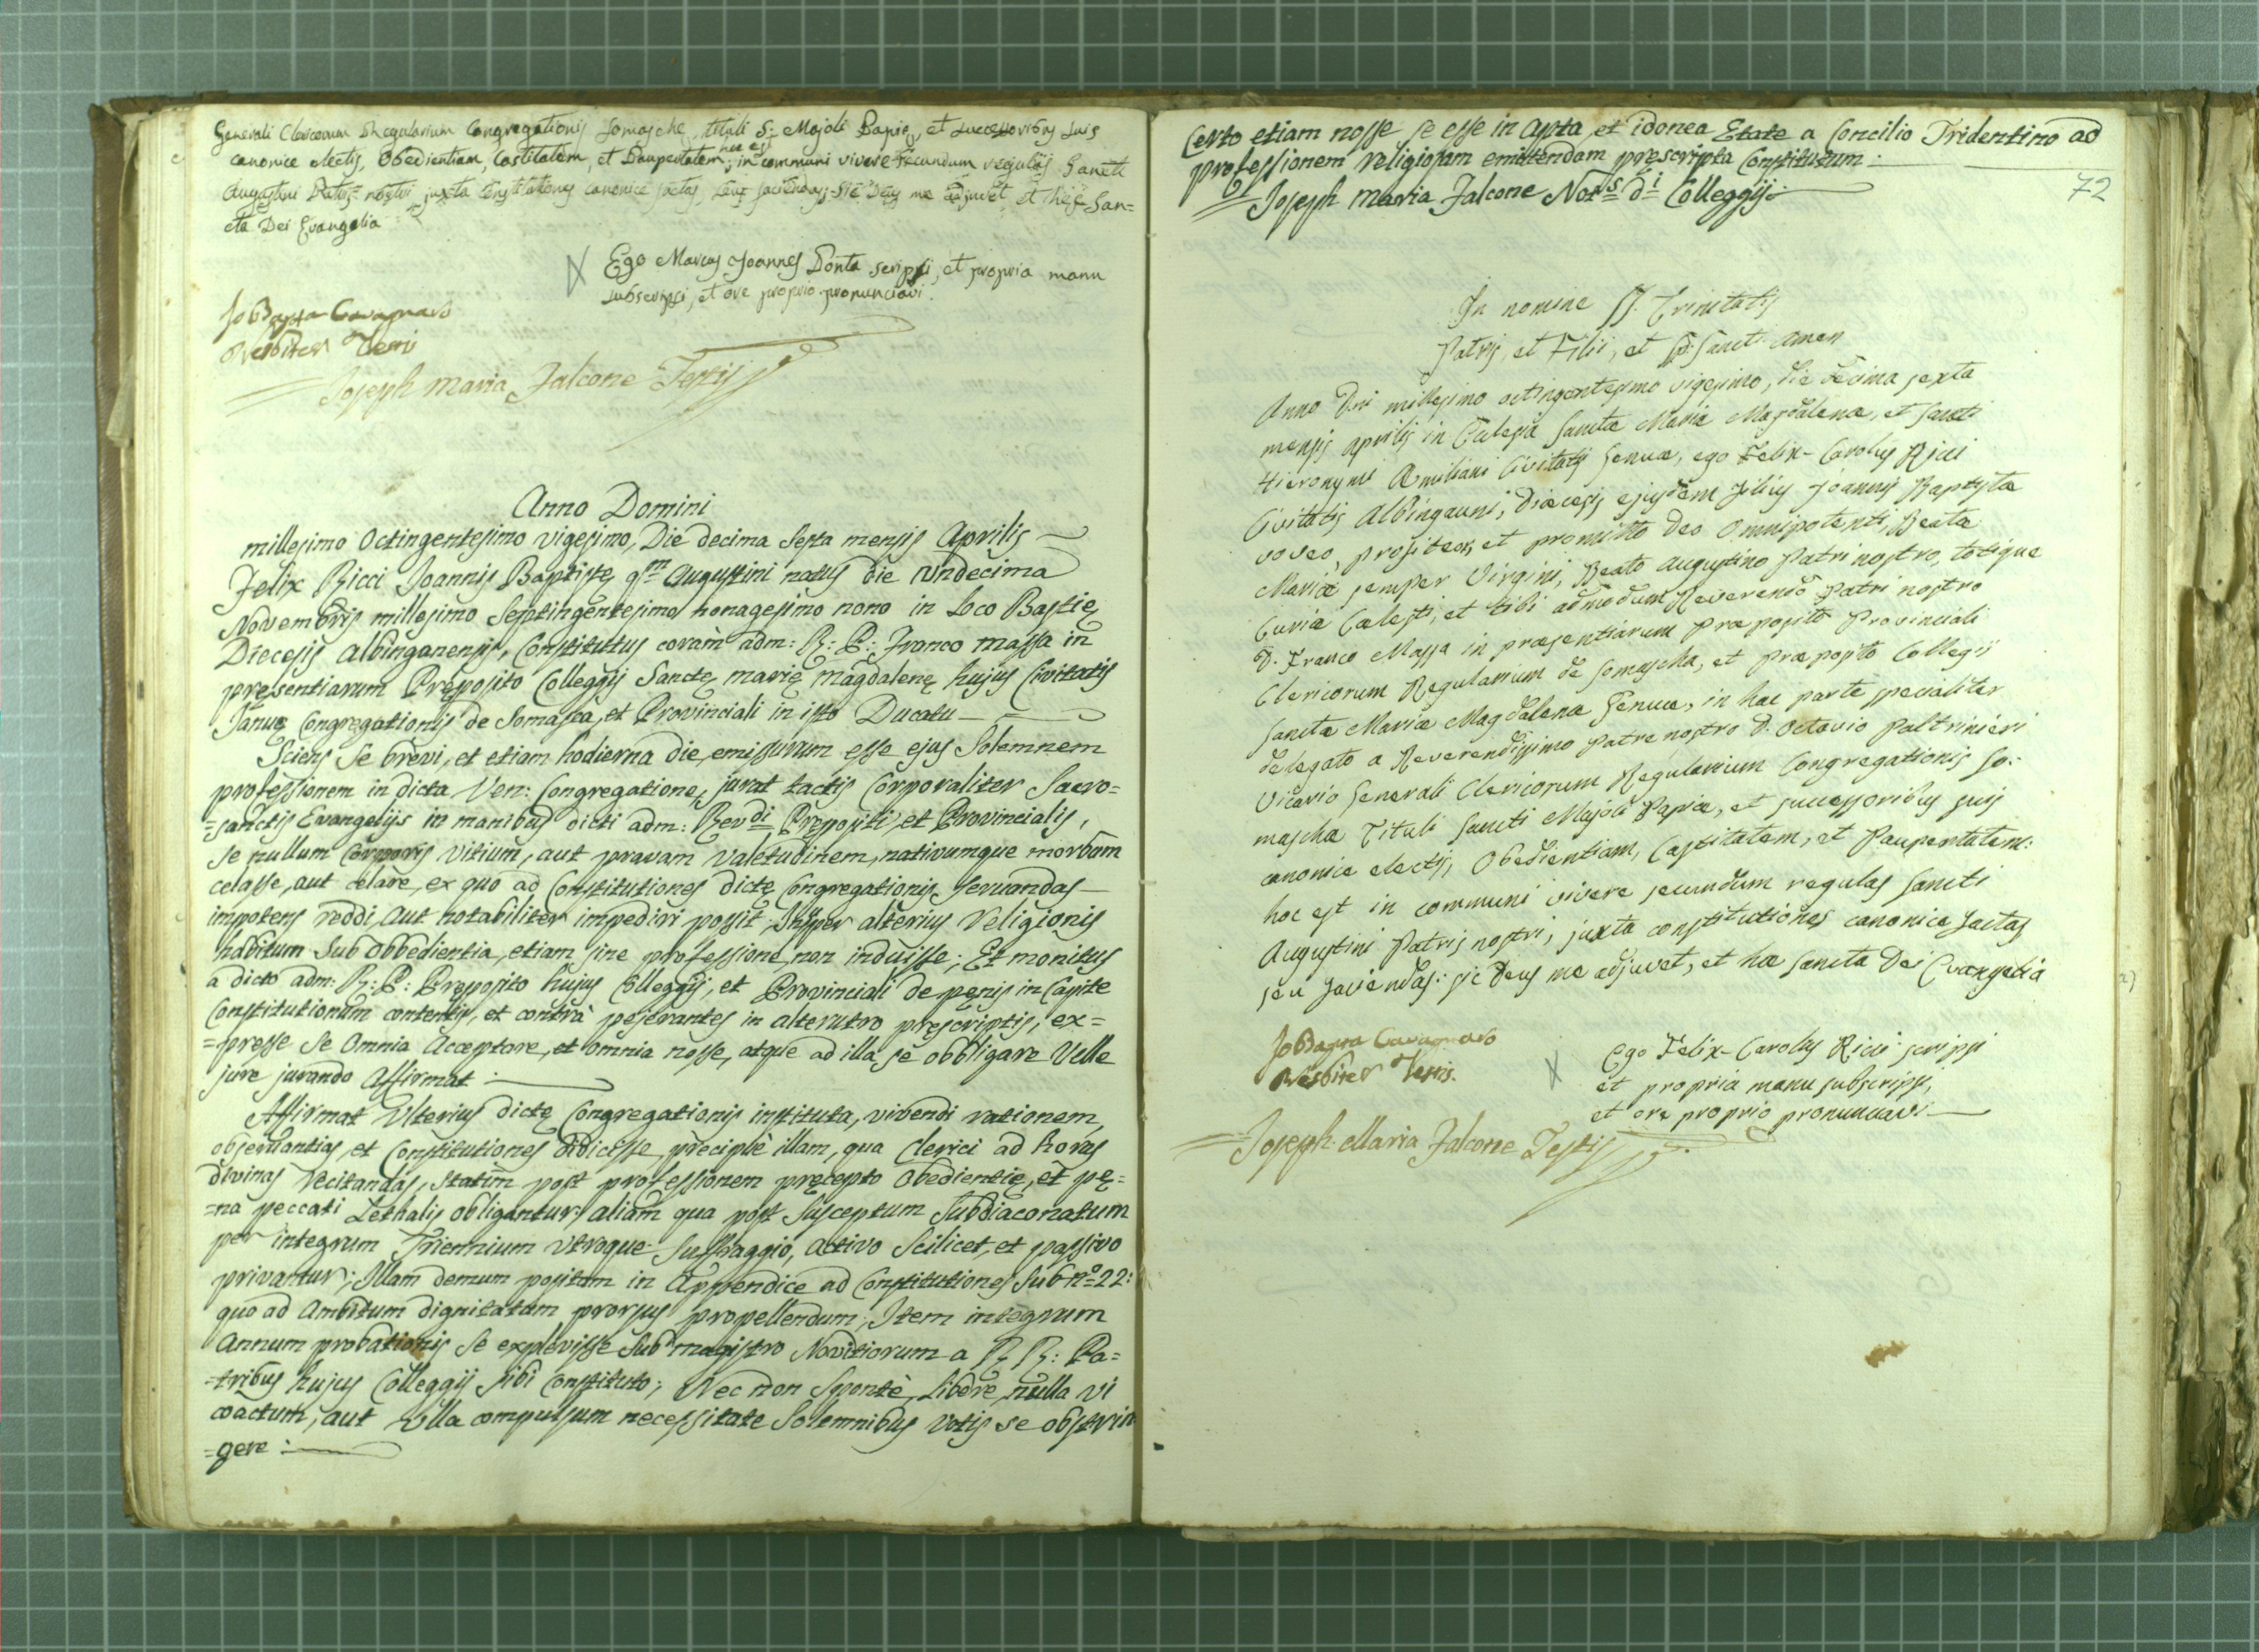 Generali Clericorum Regularium Congregationis Somasche, tituli S: Majoli Papię, et Successoribus Suis
canonice electis, Obedientiam, Castitatem, et Paupertatem; hoc est in communi vivere secundum regulas Sancti
Augustini Patris nostri juxta Constitutiones canonice factas, seu faciendas. Sic Deus me adjuvet, et hęc San=
cta Dei Evangelia
Ego Marcus Joannes Ponta scripsi, et propria manu
subscripsi, et ore proprio pronunciavi.
Jo Bapta Cavagnaro
Presbiter Testis
Joseph Maria Falcone Testis
Anno Domini
millesimo Octingentesimo vigesimo, Die decima Sexta mensis Aprilis
Felix Ricci Joannis Baptistę qm Augustini natus die Undecima
Novembris millesimo Septingentesimo nonagesimo nono in Loco Bastię
Diecesis Albinganensis, Constitutus coram adm: R: P: Franco massa in
pręsentiarum Pręposito Collegij Sanctę marię magdalenę hujus Civitatis
Januę Congregationis de Somasca, et Provinciali in isto Ducatu
Sciens Se brevi, et etiam hodierna die, emissurum esse ejus Solemnem
professionem in dicta Ven: Congregatione, jurat tactis Corporaliter Sacro=
=sanctis Evangelijs in manibus dicti adm: Revdi Prępositi, et Provincialis,
Se nullum Corporis Vitium, aut pravam valetudinem, nativumque morbum
celasse, aut celare, ex quo ad Constitutiones dictę Congregationis Servandas
impotens reddi, aut notabiliter impediri possit, Insuper alterius Religionis
habitum Sub obbedientia, etiam sine professione, non induisse; Et monitus
a dicto adm: R: P: Pręposito hujus Colleggij, et Provinciali de pęnis in Capite
Constitutionum contentis, et contrà pejerantes in alterutro pręscriptis, ex=
=presse Se Omnia Acceptare, et omnia nosse, atque ad illa se obbligare Velle
jure jurando Affirmat:
Affirmat Ulterius dictę Congregationis instituta, vivendi rationem,
observantias, et Constitutiones didicisse, precipuè illam, qua Clerici ad horas
divinas recitandas, Statim post professionem pręcepto Obedientię, et pę=
=na peccati Lethalis obligantur; aliam qua post Susceptum Subdiaconatum
per integrum Triennium Utroque Suffraggio, activo Scilicet, et passivo
privantur; Illam demum positam in Appendice ad Constitutiones Sub no 22:
quo ad Ambitum dignitatam prorsus propellendum; Item integrum
Annum probationis Se explevisse Sub magistro Novitiorum a RR: Pa=
=tribus hujus Colleggij sibi Constituto; Nec non Spontè, Liberè, nulla Vi
coactum, aut Ulla compulsum necessitate Solemnibus Votis se obstrin
=gere:
Certo etiam nosse se esse in Apta, et idonea Etate a Concilio Tridentino ad
professionem religiosam emittendam prescripta Constitutum:
Joseph Maria Falcone Nots di Colleggij:
72
In nomine SS. Trinitatis
Patris, et Filii, et Sp. Sancti Amen
Anno Dni millesimo octingentesimo vigesimo, die decima sexta
mensis Aprilis in Eclesia Sanctæ Mariæ Magdalenæ, et Sancti
Hieronymi Æmiliani Civitatis Genuæ, ego Felix-Carolus Ricci
Civitatis Albingauni, Diæcesis ejusdem filius Joannis Baptistæ
voveo, profiteor, et promitto Deo Omnipotenti, Beatæ
Mariæ semper Virgini, Beato Augustino Patri nostro, totique
Curiæ Cælesti, et tibi admodum Reverendo Patri nostro
D. Franco Massa in præsentiarum Præposito Provinciali
Clericorum Regularium de Somascha, et Præposito Collegii
Sanctæ Mariæ Magdalenæ Genuæ, in hac parte specialiter
delegato a Reverendissimo Patre nostro D. Octavio Paltrinieri
Vicario Generali Clericorum Regularium Congregationis So:
mascha Tituli Sancti Majoli Papiæ, et successoribus suis
canonice electis, Obedientiam, Castitatem, et Paupertatem:
hoc est in communi vivere secundum regulas Sancti
Augustini Patris nostri, juxta constitutiones canonice factas
seu faciendas: sic Deus me adjuvet, et hæ Sancta Dei Evangelia
Jo Bapta Cavagnaro
Presbiter Testis.
Ego Felix-Carolus Ricci scripsi
et propria manu subscripsi,
et ore proprio pronunciavi
Joseph Maria Falcone Testis